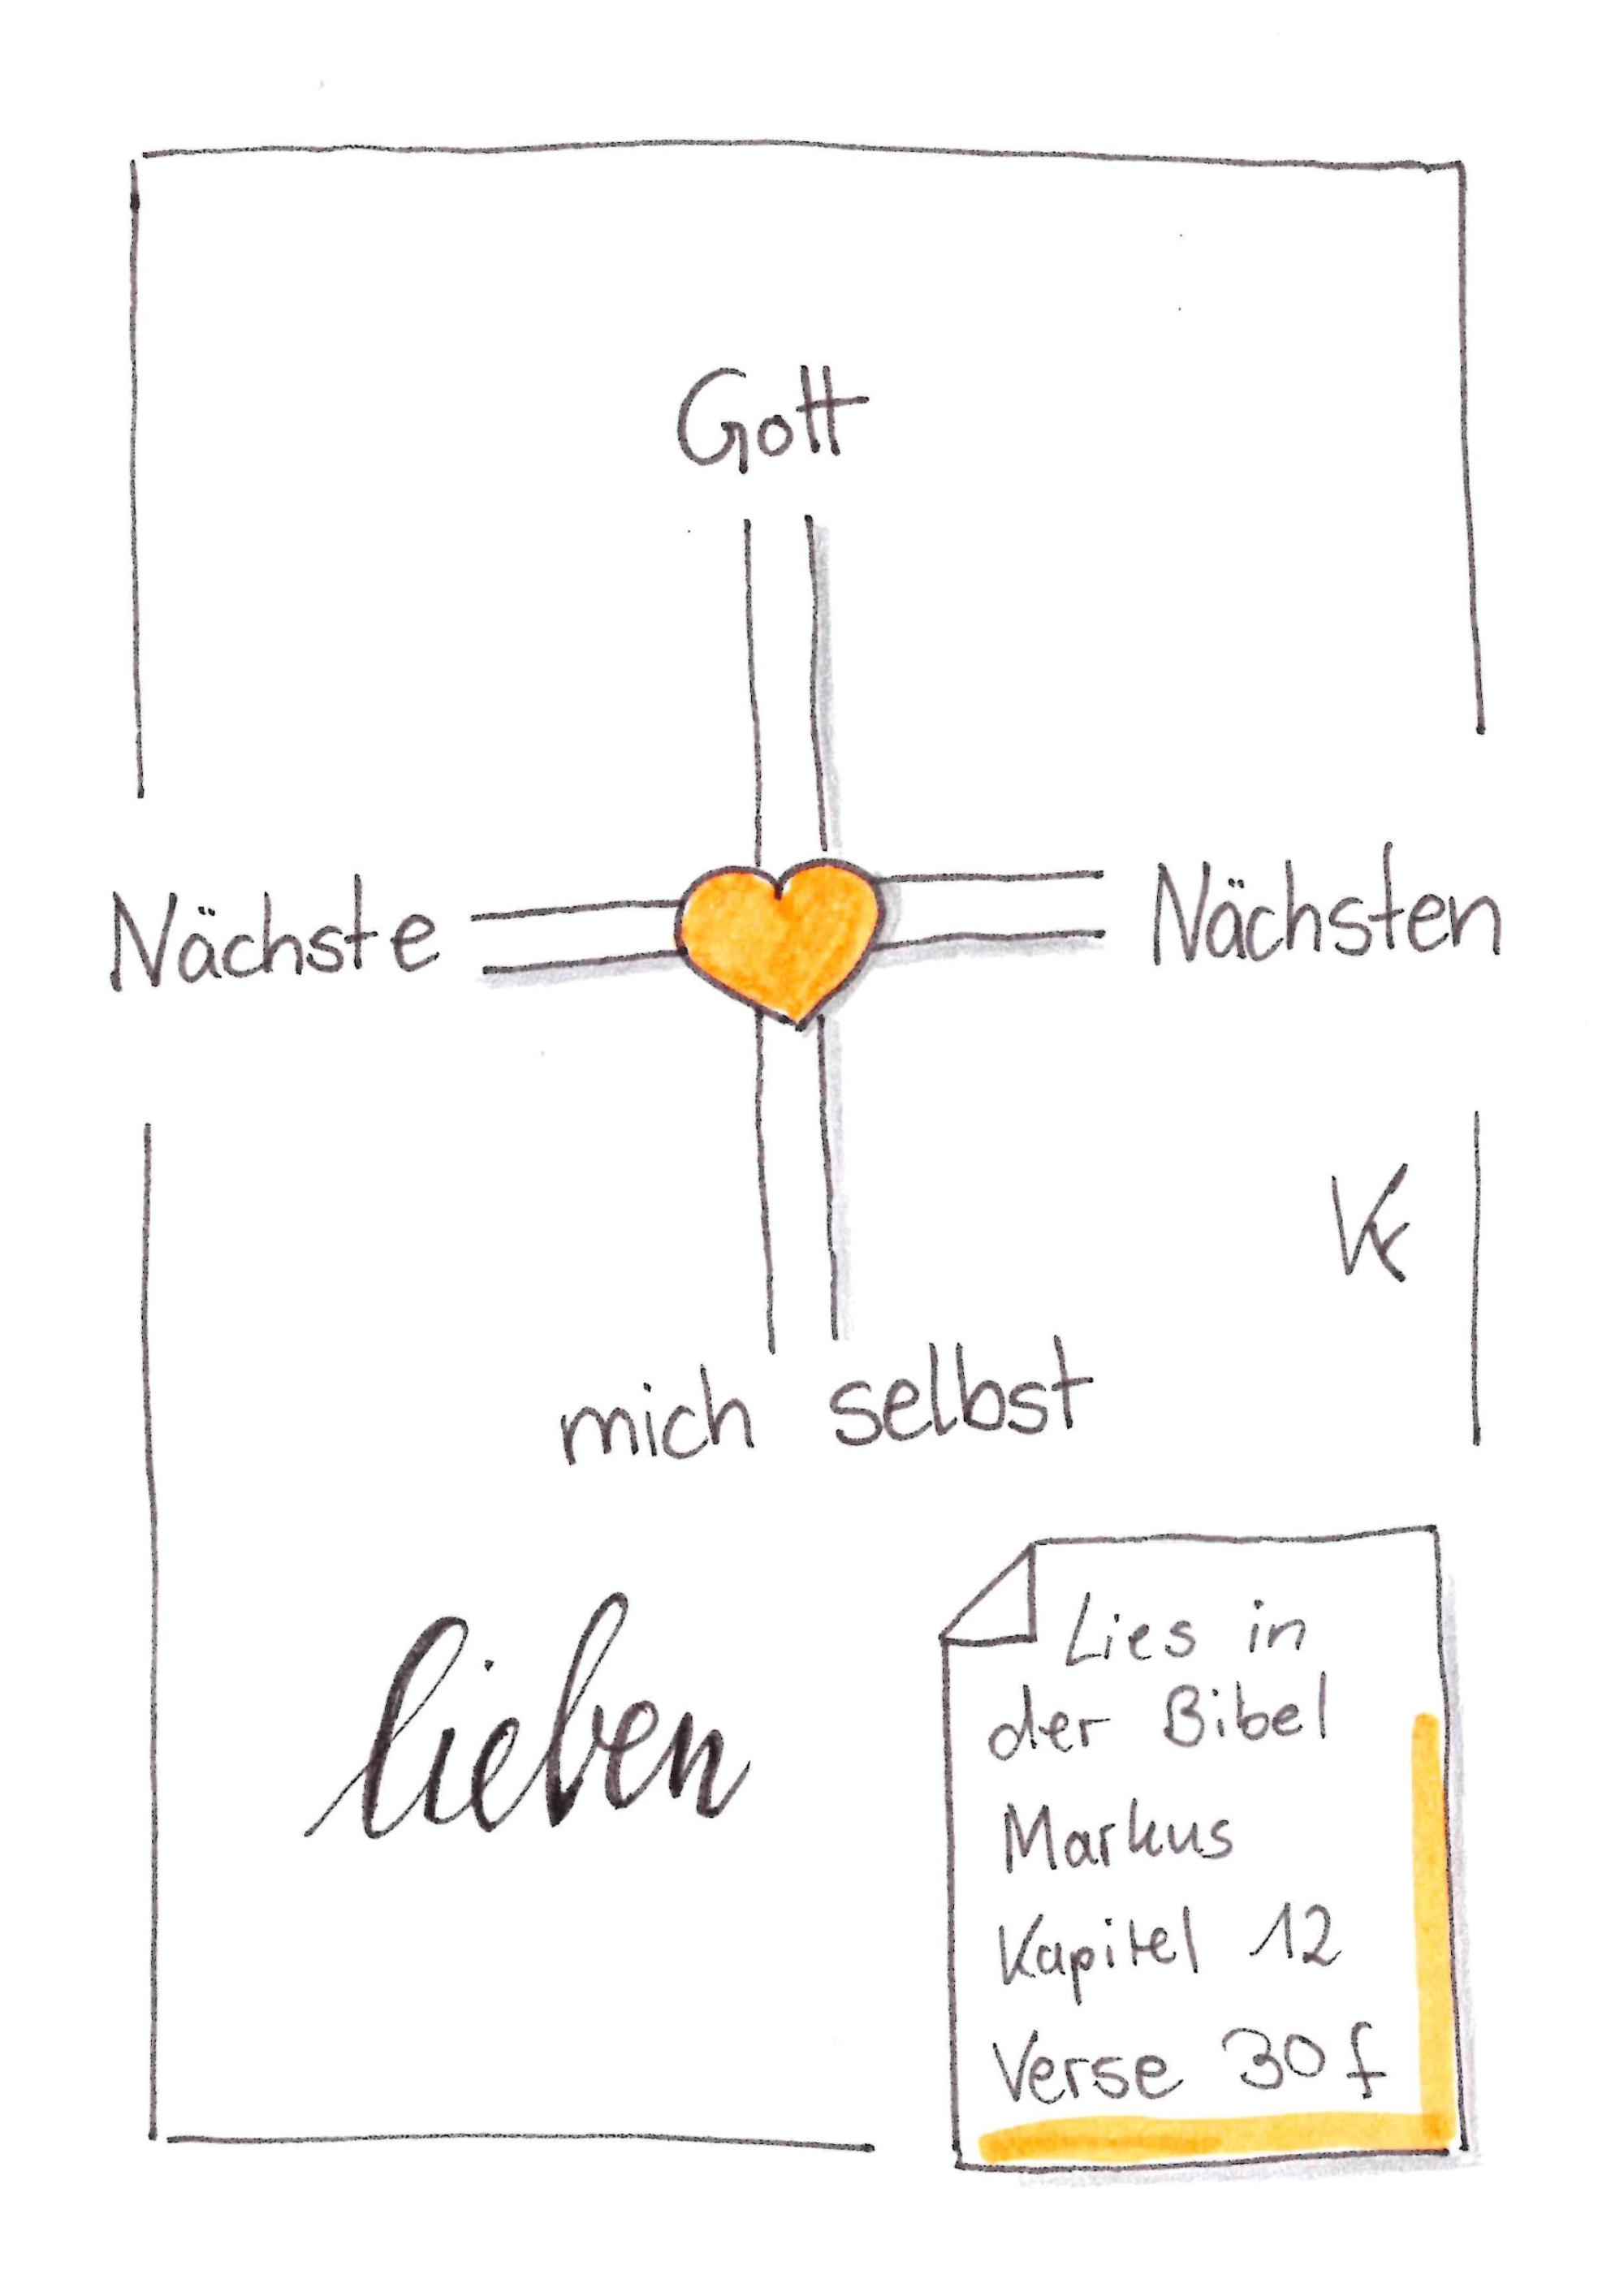 Gott
Nächste Nächsten
VK
mich selbst
lieben
Lies in
der Bibel
Markus
Kapitel 12
Verse 30 f